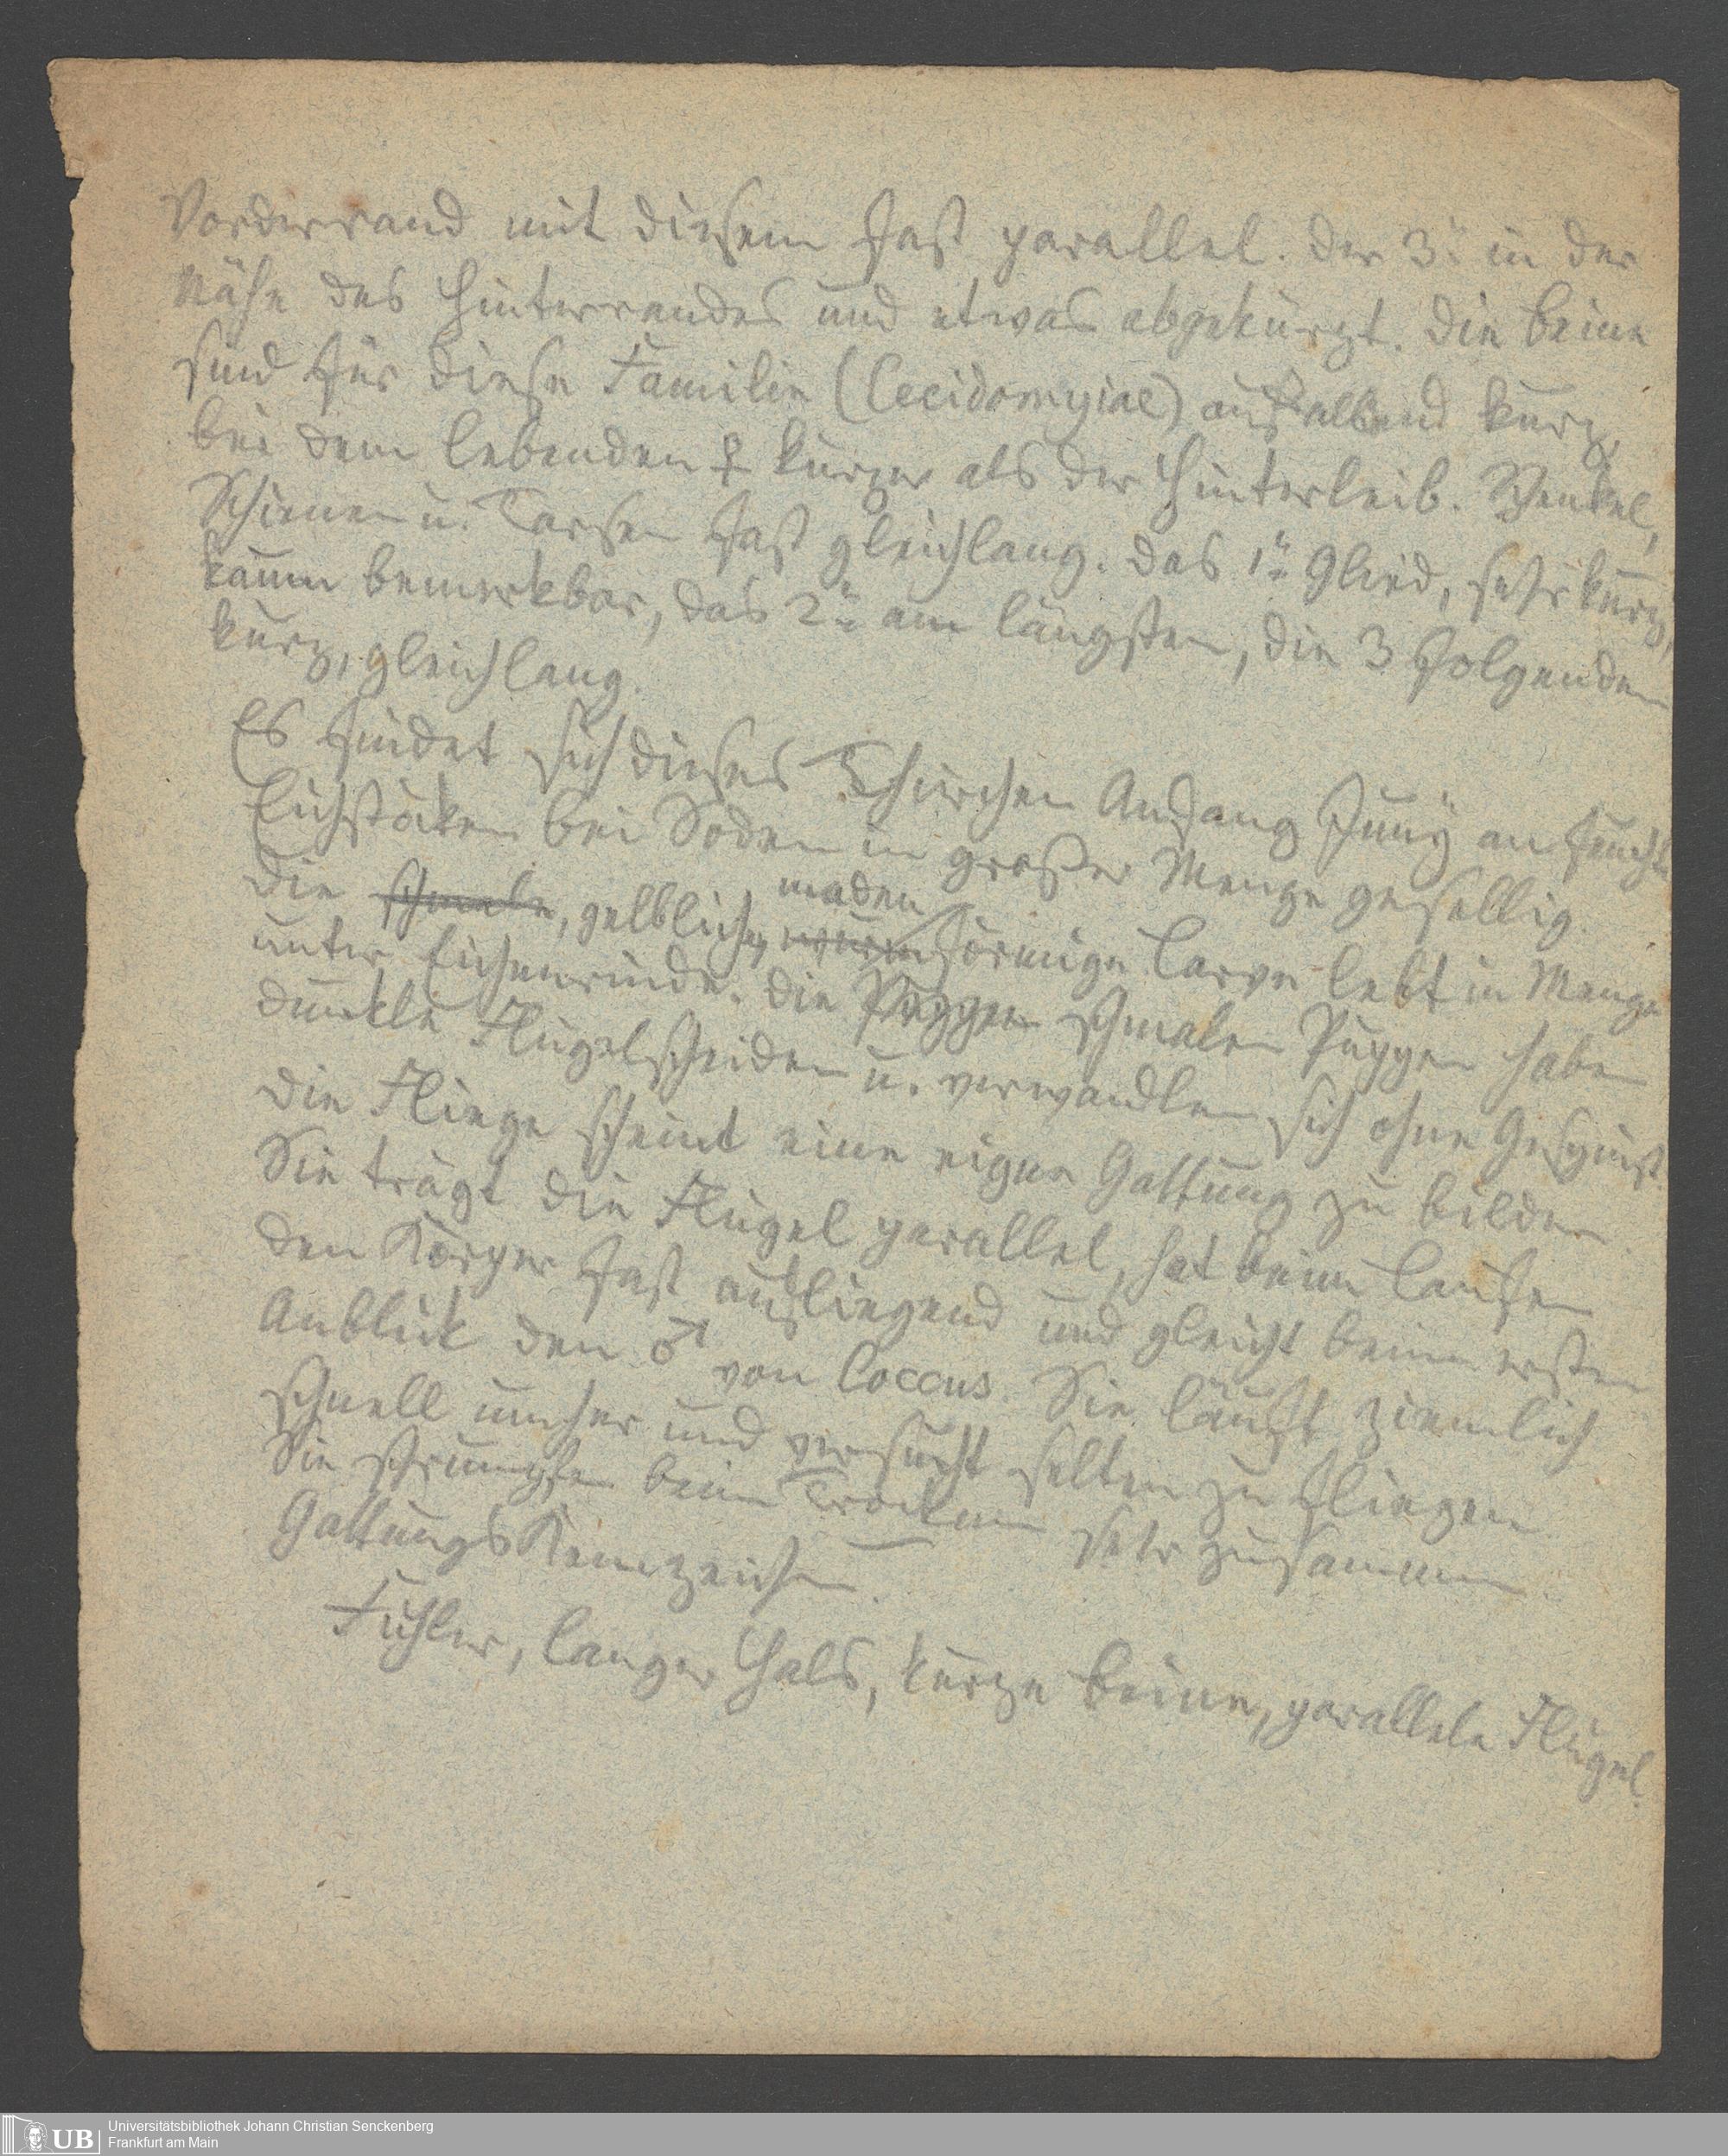 Vorderrand mit diesem fast parallel. der 3te in der
Nähe des Hinterrandes und etwas abgekürzt. Die Beine
sind für diese Familie (Cecidomyiae) auffallend kurz,
bei dem lebenden ♀ kürzer als der Hinterleib. Schenkel,
Schienen u. Tarsen fast gleichlang. das 1te Glied, sehr kurz,
kaum bemerkbar, das 2te am längsten, die 3 folgenden
kurz, gleichlang.
Es findet sich dieses Thierchen Anfang Juny an
Eichstöcken bei Soden in großer Menge gesellig.
Die schmale, gelbliche, wurmförmige Larve lebt in Menge
maden
unter Eichenrinde. Die Puppen schmalen Puppen haben
dunkle Flügelscheiden u. verwandlen sich ohne Gespinst.
Die Fliege scheint eine eigne Gattung zu bilden.
Sie trägt die Flügel parallel, hat beim Laufen
den Körper fast aufliegend und gleicht beim ersten
Anblick den ♂ von Coccus. Sie läuft ziemlich
schnell umher und versucht selten zu fliegen
Sie schrumpfen beim Trocknen sehr zusammen
Gattungs Kennzeichen.
Fühler, langer Hals, kurze Beine, parallele Flügel.
Universitätsbibliothek Johann Christian Senckenberg
Frankfurt am Main
UB